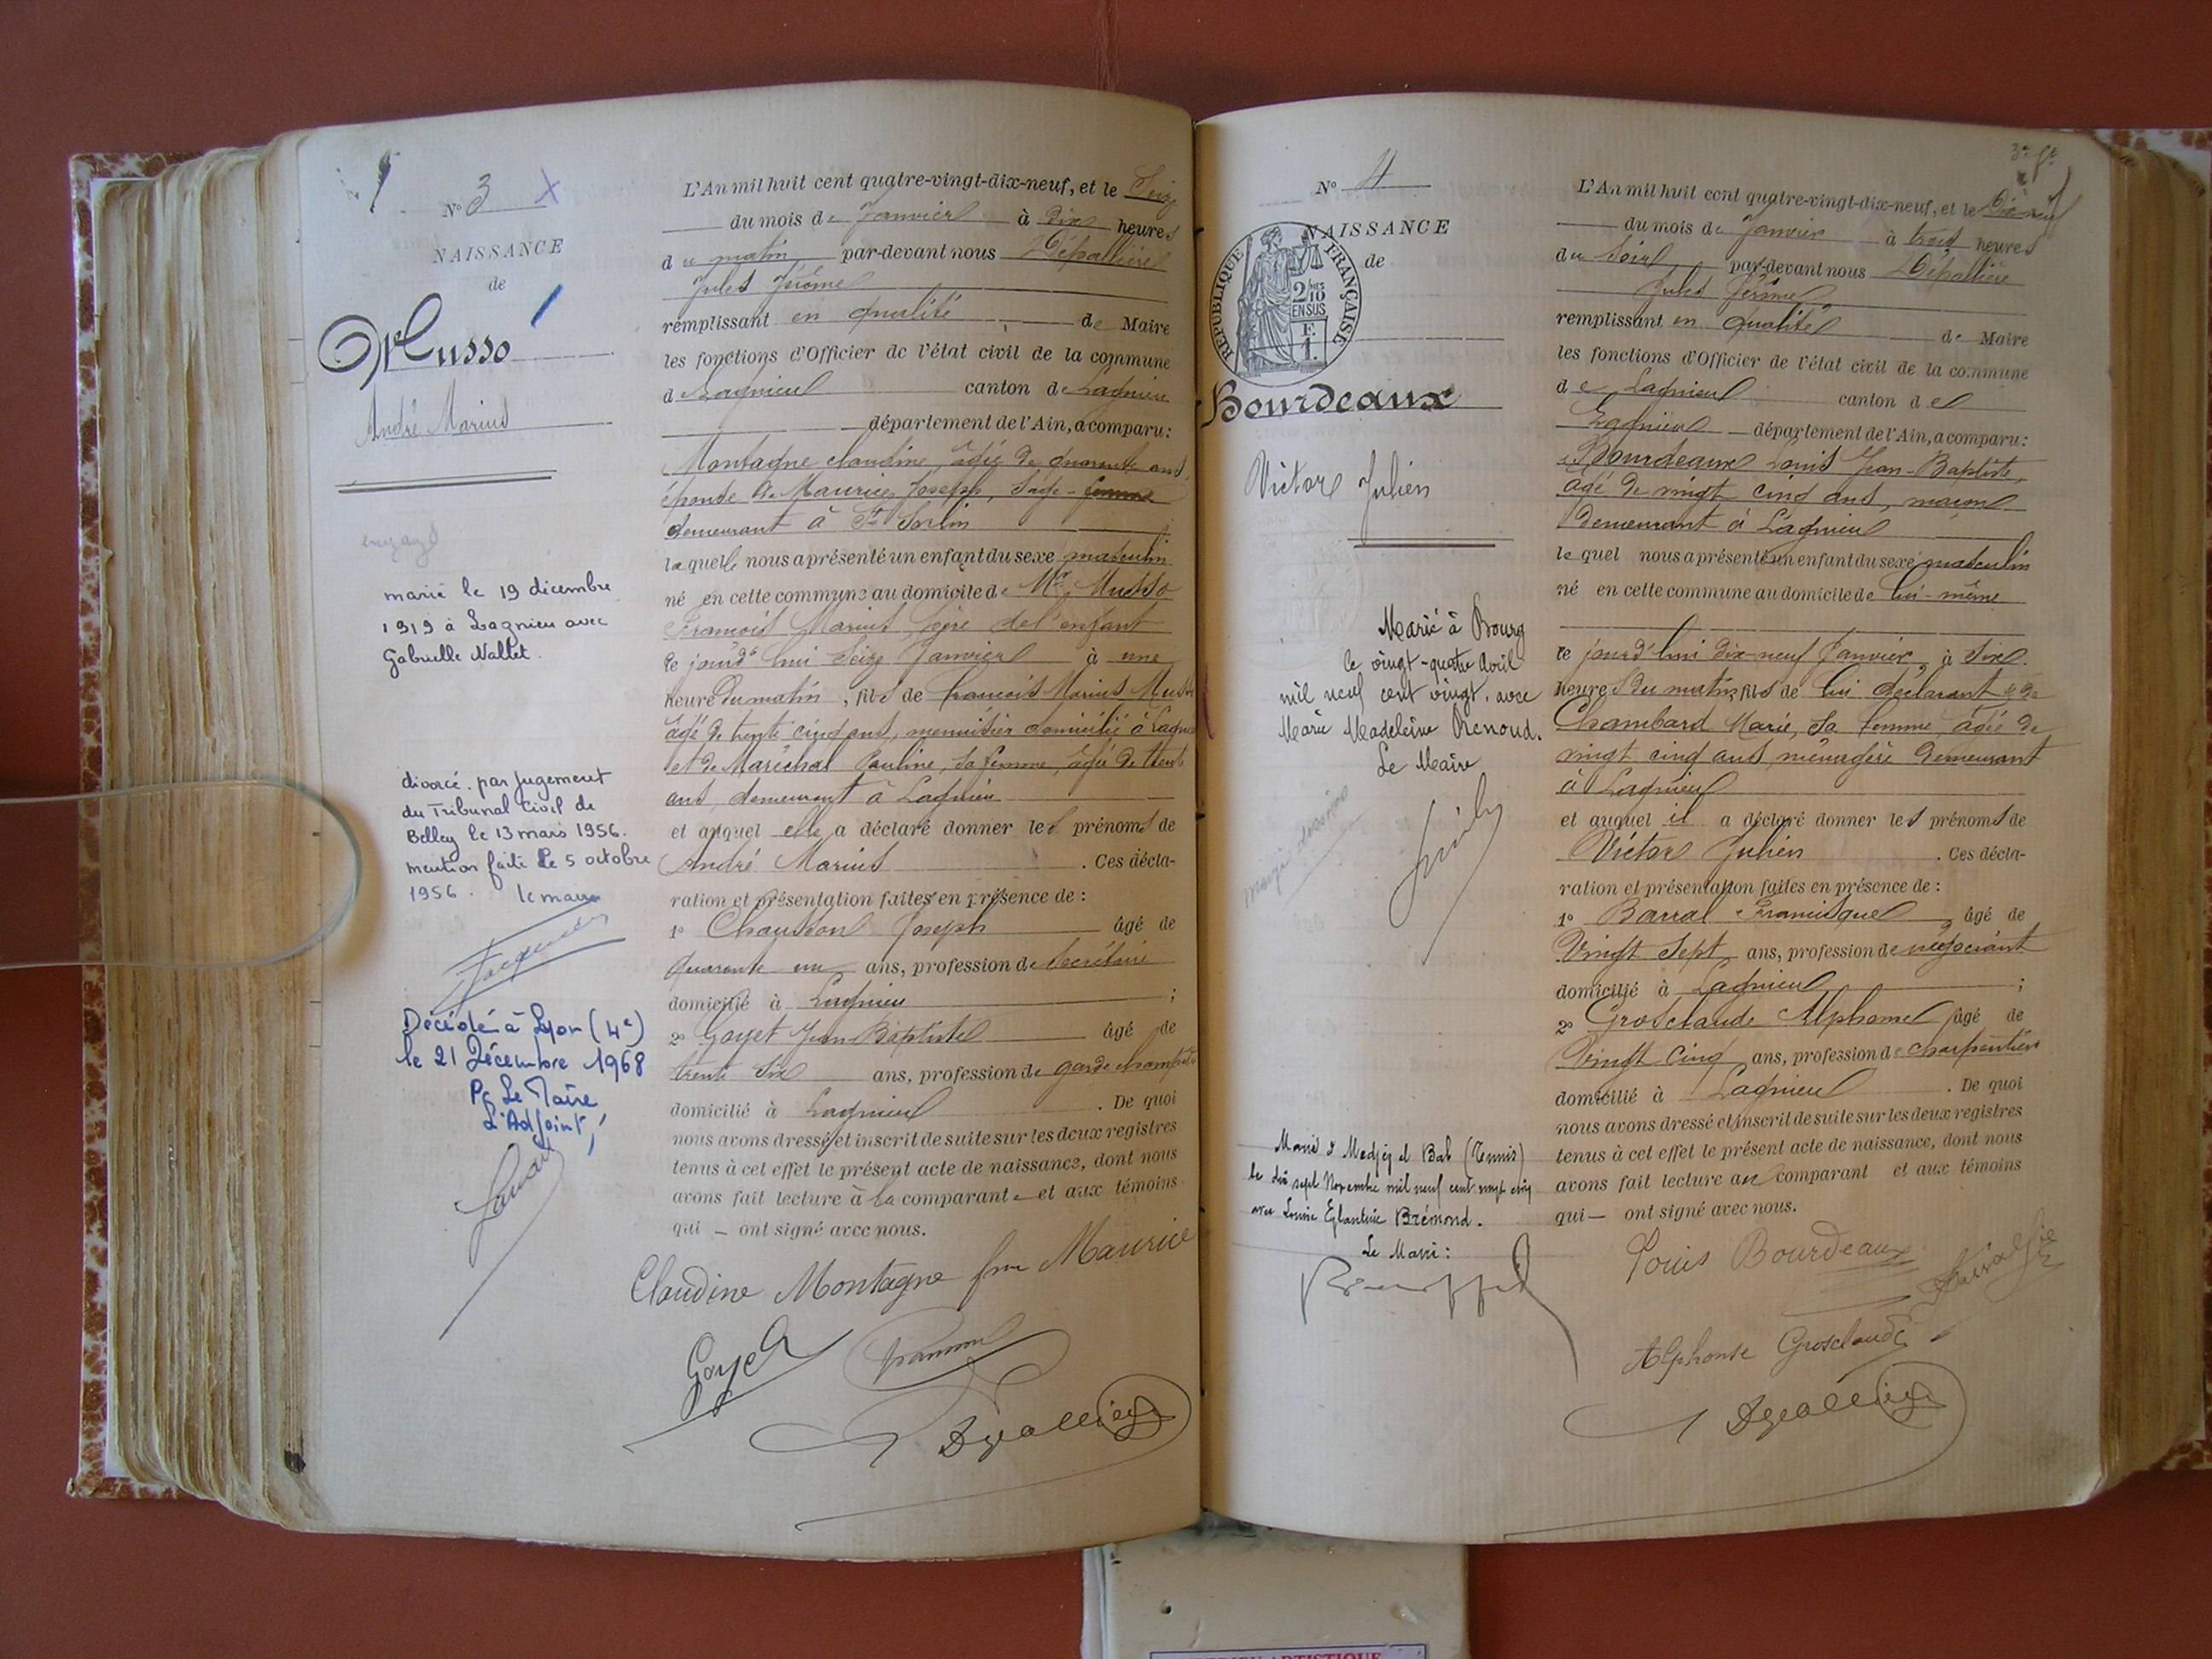 N° 3 X
NAISSANCE
de
Musso
André Marius
engagé
marié le 19 décembre
1919 à Lagnieu avec
Gabrielle Nallet.
divorcé par Jugement
du Tribunal Civil de
Belley le 13 mars 1956.
mention faite le 5 octobre
1956. le maire
Décédé à Lyon (4e)
le 21 Décembre 1968
Pr Le Maire
L'Adjoint,
L'An mil huit cent quatre-vingt-dix-neuf, et le Seize
du mois de Janvier à dix heures
du matin par-devant nous Dépallière
Jules Jérôme
remplissant en qualité de Maire
les fonctions d'Officier de l'état civil de la commune
de Lagnieu canton de Lagnieu
département de l'Ain, a comparu:
Montagne claudine, âgée de quarante ans
épouse de Maurice Joseph, Sage-femme
demeurant à St Sorlin
laquelle nous a présenté un enfant du sexe masculin
né en cette commune au domicile de Mr Musso
François Marius, père de l'enfant
ce jourd'hui Seize Janvier à une
heure du matin, fils de François Marius Musso
âgé de trente cinq ans, menuisier domicilié à Lagnieu
et de Maréchal Pauline, sa femme, âgée de trente
ans, demeurant à Lagnieu
et auquel elle a déclaré donner les prénoms de
André Marius. Ces décla-
ration et présentation faites en présence de:
1° Chausson Joseph âgé de
quarante un ans, profession de Secrétaire
domicilié à Lagnieu;
2° Goyet Jean-Baptiste âgé de
trente six ans, profession de garde champêtre
domicilié à Lagnieu. De quoi
nous avons dressé et inscrit de suite sur les deux registres
tenus à cet effet le présent acte de naissance, dont nous
avons fait lecture à la comparante et aux témoins
qui — ont signé avec nous.
Claudine Montagne fme Maurice
Goyet
Dépallière
N° 4
NAISSANCE
de
REPUBLIQUE FRANÇAISE
2/10
EN SUS
1 F.
Bourdeaux
Victor Julien
Marié à Bourg
le vingt-quatre Avril
mil neuf cent vingt, avec
Marie Madeleine Renoud.
Le Maire
Marié à Medjez el Bab (Tunis)
le dix sept Novembre mil neuf cent vingt cinq
avec Louise Eglantine Brémond.
Le Maire:
L'An mil huit cent quatre-vingt-dix-neuf, et le Dix neuf
du mois de Janvier à trois heures
du Soir par-devant nous Dépallière
Jules Jérôme
remplissant en qualité de Maire
les fonctions d'Officier de l'état civil de la commune
de Lagnieu canton de
Lagnieu département de l'Ain, a comparu:
Bourdeaux Louis Jean-Baptiste,
âgé de vingt cinq ans, maçon
demeurant à Lagnieu
lequel nous a présenté un enfant du sexe masculin
né en cette commune au domicile de lui-même
ce jourd'hui dix-neuf Janvier, à Six
heures du matin, fils de lui déclarant & de
Chambard Marie, Sa femme, âgée de
vingt cinq ans, ménagère demeurant
à Lagnieu
et auquel il a déclaré donner les prénoms de
Victor Julien. Ces décla-
ration et présentation faites en présence de:
1° Barral Francisque, âgé de
Vingt Sept ans, profession de négociant
domicilié à Lagnieu;
2° Grosclaude Alphonse âgé de
Vingt Cinq ans, profession de charpentier
domicilié à Lagnieu. De quoi
nous avons dressé et inscrit de suite sur les deux registres
tenus à cet effet le présent acte de naissance, dont nous
avons fait lecture au comparant et aux témoins
qui — ont signé avec nous.
Louis Bourdeaux
Alphonse Grosclaude
Dépallière